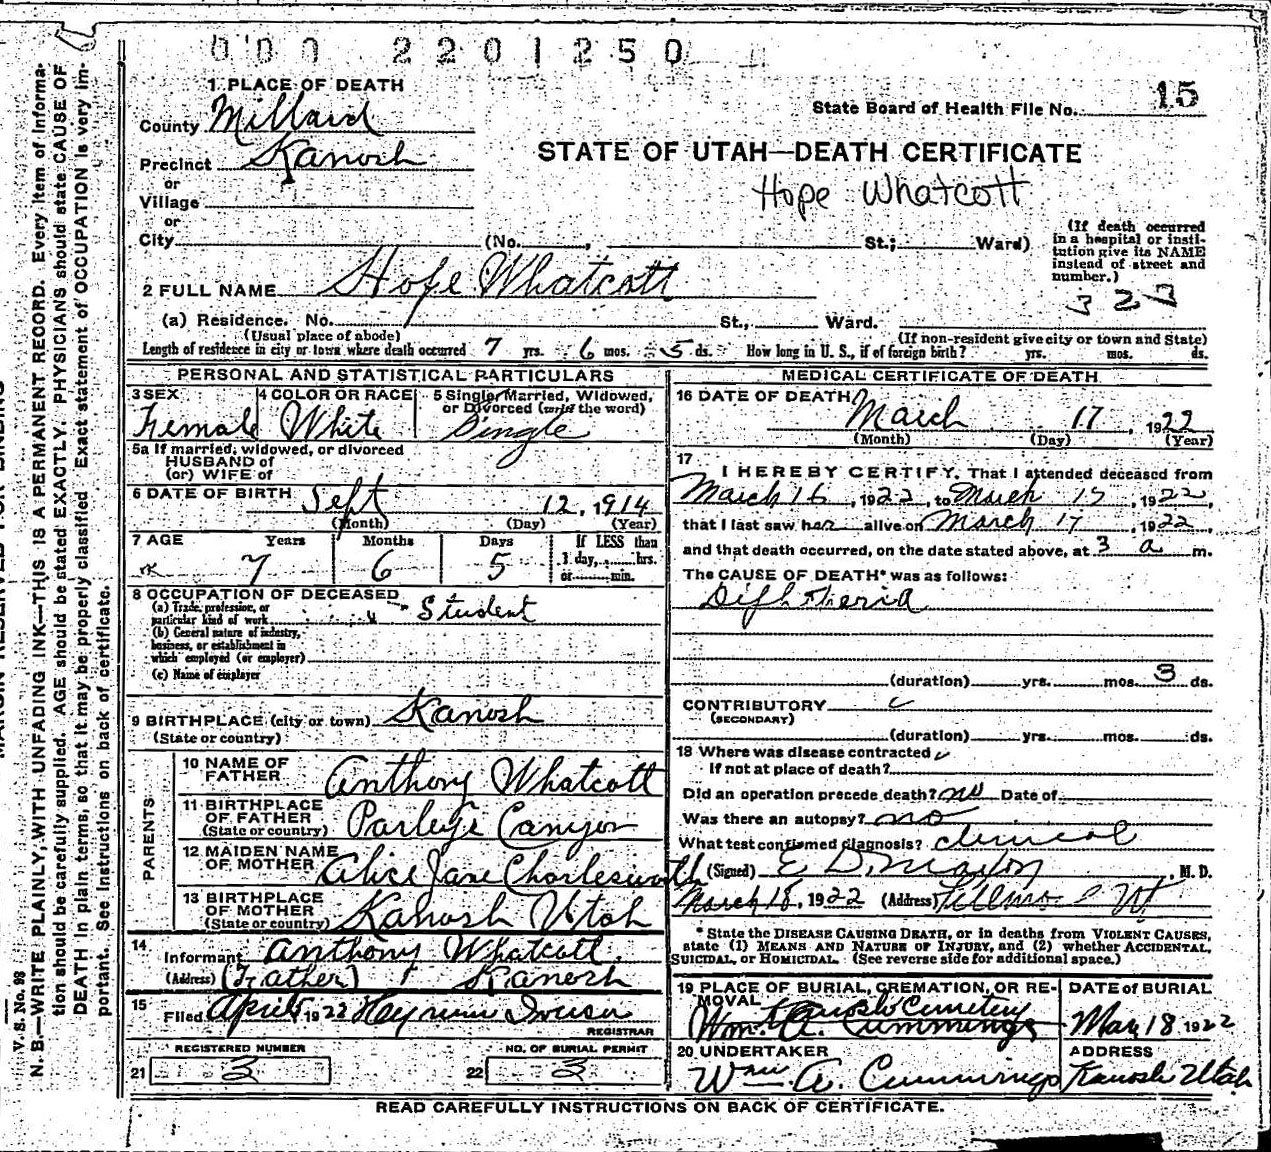 000 2201250
1 PLACE OF DEATH
State Board of Health File No. 15
County Millard
STATE OF UTAH—DEATH CERTIFICATE
Precinct Kanosh
Hope Whatcott
or
Village
or
City (No. , St.; Ward)
(If death occurred in a hospital or insti-
tution give its NAME
instead of street and
number.)
2 FULL NAME Hope Whatcott
(a) Residence. No. St., Ward.
(Usual place of abode)
(If non-resident give city or town and State)
Length of residence in city or town where death occurred 7 yrs. 6 mos. 5 ds. How long in U. S., if of foreign birth? yrs. mos. ds.
PERSONAL AND STATISTICAL PARTICULARS
3 SEX Female
4 COLOR OR RACE White
5 Single, Married, Widowed,
or Divorced (write the word)
Single
5a If married, widowed, or divorced
HUSBAND of
(or) WIFE of
6 DATE OF BIRTH Sept 12, 1914
(Month) (Day) (Year)
7 AGE Years Months Days If LESS than
1 day, hrs.
or min.
7 6 5
8 OCCUPATION OF DECEASED
(a) Trade, profession, or
particular kind of work Student
(b) General nature of industry,
business, or establishment in
which employed (or employer)
(c) Name of employer
9 BIRTHPLACE (city or town) Kanosh
(State or country)
PARENTS
10 NAME OF
FATHER Anthony Whatcott
11 BIRTHPLACE
OF FATHER
(State or country) Parleys Canyon
12 MAIDEN NAME
OF MOTHER Alice Jane Charlesworth
13 BIRTHPLACE
OF MOTHER
(State or country) Kanosh Utah
14
Informant Anthony Whatcott
(Address) (Father) Kanosh
15 Filed April 1922
REGISTRAR
REGISTERED NUMBER
21 3
NO. OF BURIAL PERMIT
22 3
MEDICAL CERTIFICATE OF DEATH
16 DATE OF DEATH March 17, 1922
(Month) (Day) (Year)
17
I HEREBY CERTIFY, That I attended deceased from
March 16, 1922, to March 17, 1922,
that I last saw her alive on March 17, 1922
and that death occurred, on the date stated above, at 3 a m.
The CAUSE OF DEATH* was as follows:
Diphtheria
(duration) yrs. mos. 3 ds.
CONTRIBUTORY
(SECONDARY)
(duration) yrs. mos. ds.
18 Where was disease contracted
If not at place of death?
Did an operation precede death? no Date of
Was there an autopsy? no
What test confirmed diagnosis? clinical
(Signed) , M. D.
March 18, 1922 (Address) Fillmore Ut
* State the DISEASE CAUSING DEATH, or in deaths from VIOLENT CAUSES,
state (1) MEANS AND NATURE OF INJURY, and (2) whether ACCIDENTAL,
SUICIDAL, or HOMICIDAL. (See reverse side for additional space.)
19 PLACE OF BURIAL, CREMATION, OR RE-
MOVAL Kanosh Cemetery
Wm. A. Cummings
DATE of BURIAL
Mar 18 1922
20 UNDERTAKER
Wm A. Cummings
ADDRESS
Kanosh Utah
READ CAREFULLY INSTRUCTIONS ON BACK OF CERTIFICATE.
V. S. No. 98
N. B.—WRITE PLAINLY, WITH UNFADING INK—THIS IS A PERMANENT RECORD. Every item of informa-
tion should be carefully supplied. AGE should be stated EXACTLY. PHYSICIANS should state CAUSE OF
DEATH in plain terms, so that it may be properly classified. Exact statement of OCCUPATION is very im-
portant. See instructions on back of certificate.